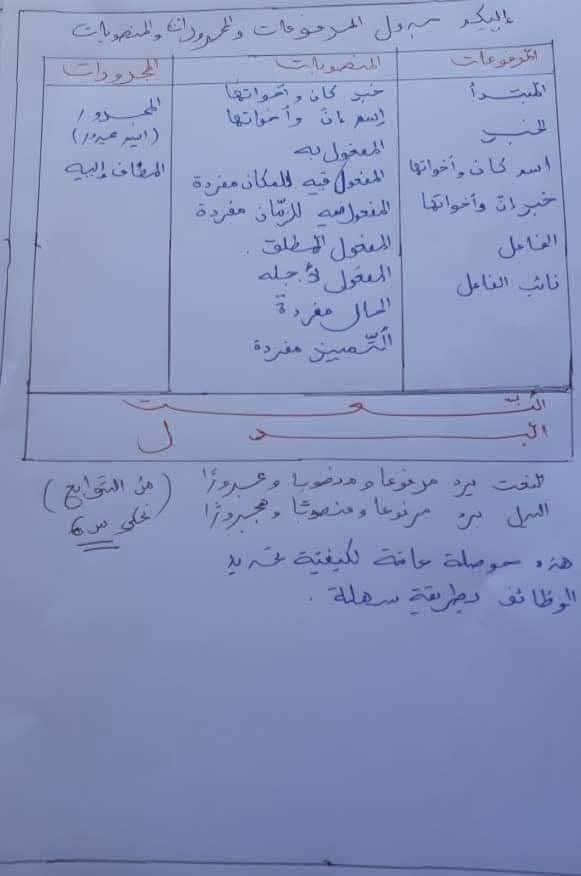 إليكم جدول المرفوعات والمجرورات والمنصوبات
المرفوعات
المبتدأ
الخبر
اسم كان وأخواتها
خبر إنّ وأخواتها
الفاعل
نائب الفاعل
المنصوبات
خبر كان وأخواتها
اسم إنّ وأخواتها
المفعول به
المفعول فيه للمكان مفردة
المفعول فيه للزّمان مفردة
المفعول المطلق.
المفعول لأجله
الحال مفردة
التّمييز مفردة
المجرورات
المجرور
(اسم مجرور)
المضاف إليه
النّعت
البدل
النعت يرد مرفوعا ومنصوبا ومجرورًا (من التوابع)
البدل يرد مرفوعا ومنصوبًا ومجرورًا
هذه حوصلة عامة لكيفيّة تحديد
الوظائف بطريقة سهلة.